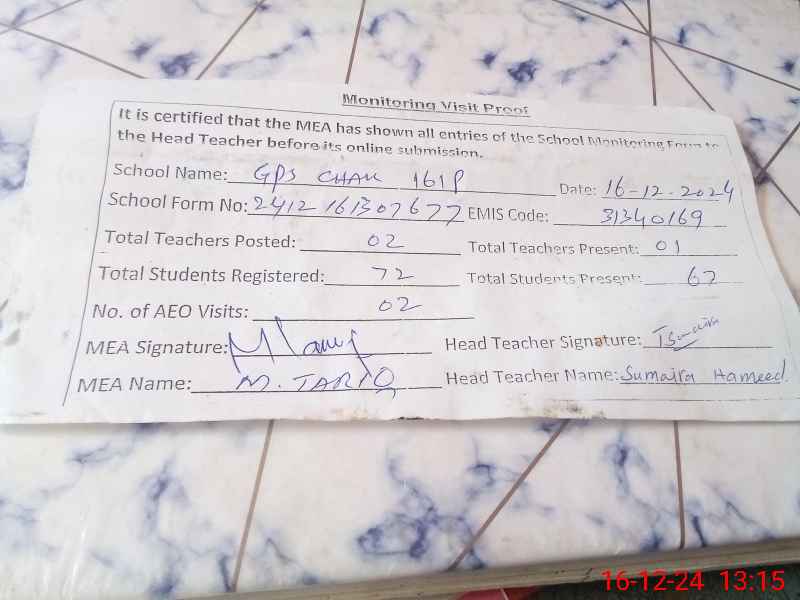 Monitoring Visit Proof
It is certified that the MEA has shown all entries of the School Monitoring Form to
the Head Teacher before its online submission.
School Name: GPS CHAK 161P Date: 16-12-2024
School Form No: 2412161307677 EMIS Code: 31340169
Total Teachers Posted: 02 Total Teachers Present: 01
Total Students Registered: 72 Total Students Present: 62
No. of AEO Visits: 02
MEA Signature: Head Teacher Signature:
MEA Name: M. TARIQ Head Teacher Name: Sumaira Hameed
16-12-24 13:15